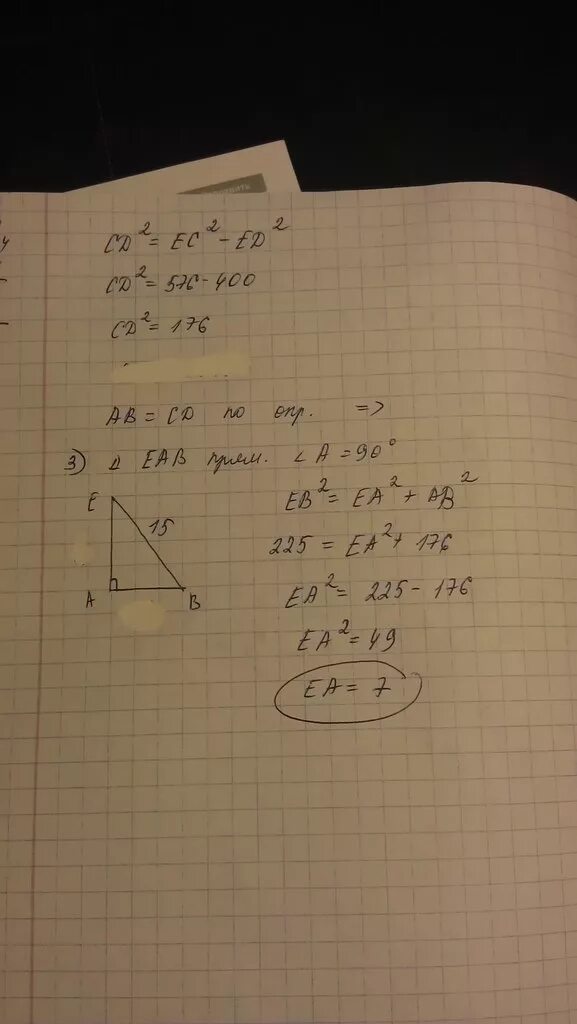 CD² = EC² - ED²
CD² = 576 - 400
CD² = 176
AB = CD по опр. =>
3) Δ EAB прям. ∠ A = 90°
E
15
A
B
EB² = EA² + AB²
225 = EA² + 176
EA² = 225 - 176
EA² = 49
EA = 7